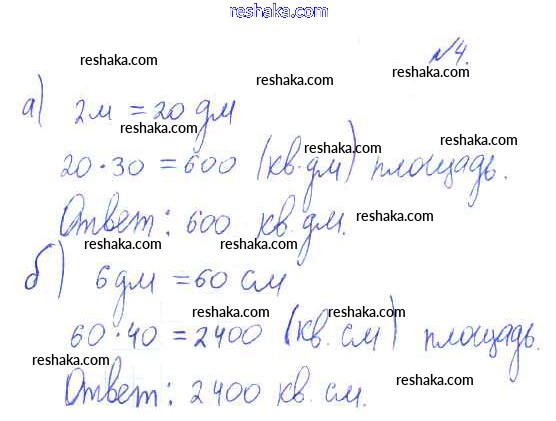 reshaka.com
№4.
reshaka.com reshaka.com
а) 2м = 20 дм
reshaka.com reshaka.com
reshaka.com
20·30 = 600 (кв.дм) площадь.
reshaka.com reshaka.com
Ответ: 600 кв.дм.
reshaka.com reshaka.com reshaka.com
б) 6дм = 60 см
reshaka.com reshaka.com
60·40 = 2400 (кв.см) площадь.
reshaka.com reshaka.com
reshaka.com
Ответ: 2400 кв.см.
reshaka.com reshaka.com